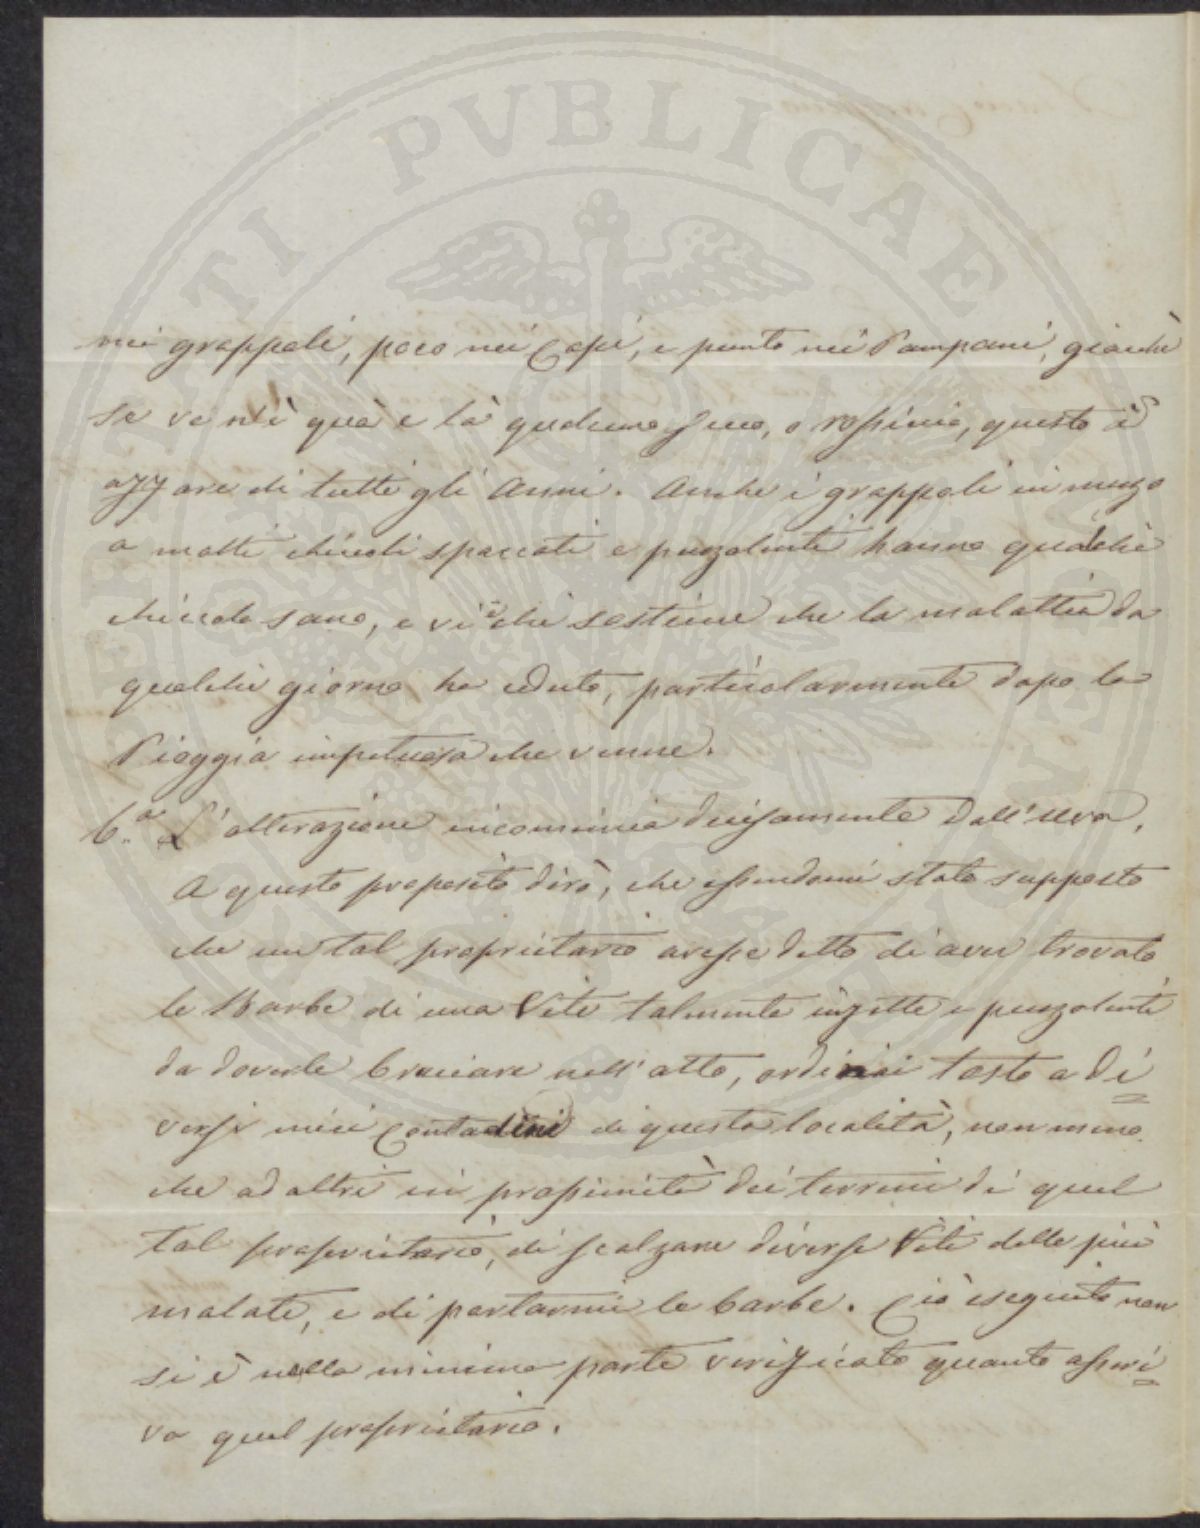 PERITI PVBLICAE
nei grappoli, poco nei Capi, e punto nei Pampani, giacchè
se ve n'è quà e là qualcuno secco, o rossiccio, questo è
affare di tutti gli Anni. Anche i grappoli in mezzo
a molti chicchi spaccati e puzzolenti hanno qualche
chicco sano, e vi è chi sostiene che la malattia da
qualche giorno ha ceduto, particolarmente dopo la
Pioggia impetuosa che venne.
6.a L'alterazione incomincia decisamente dall'uva.
A questo proposito dirò, che essendomi stato supposto
che un tal proprietario avesse detto di aver trovato
le Barbe di una Vite talmente infette e puzzolenti
da doverle bruciare nell'atto, ordinai tosto a di
versi miei Contadini di questa località, non meno
che ad altri in prossimità dei terreni di quel
tal proprietario, di scalzare diverse Viti delle più
malate, e di portarmi le barbe. Ciò eseguito non
si è nella minima parte verificato quanto asseri
va quel proprietario.